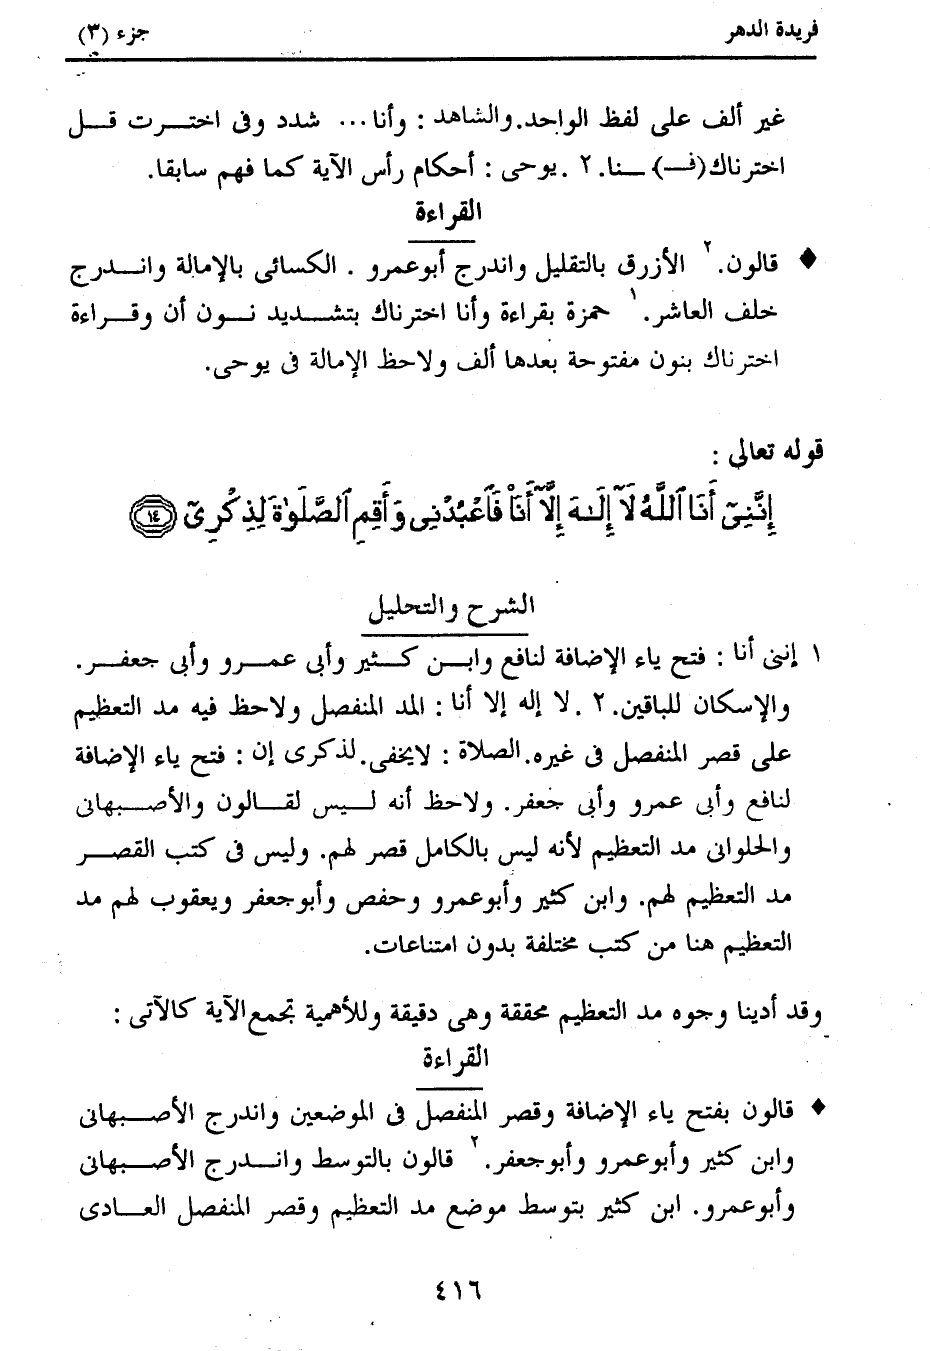 فريدة الدهر
جزء (٣)
غير ألف على لفظ الواحد. والشاهد : وأنا... شدد وفى اخترت قل
اخترناك (فـ) ــنا. ٢ .يوحى : أحكام رأس الآية كما فهم سابقا.
القراءة
♦ قالون. ٢ الأزرق بالتقليل واندرج أبوعمرو . الكسائى بالإمالة واندرج
خلف العاشر. ١ حمزة بقراءة وأنا اخترناك بتشديد نون أن وقراءة
اخترناك بنون مفتوحة بعدها ألف ولاحظ الإمالة فى يوحى.
قوله تعالى :
إِنَّنِىٓ أَنَا ٱللَّهُ لَآ إِلَٰهَ إِلَّآ أَنَا۠ فَٱعْبُدْنِى وَأَقِمِ ٱلصَّلَوٰةَ لِذِكْرِىٓ ١٤
الشرح والتحليل
١ إننى أنا : فتح ياء الإضافة لنافع وابن كثير وأبى عمرو وأبى جعفر.
والإسكان للباقين. ٢ .لا إله إلا أنا : المد المنفصل ولاحظ فيه مد التعظيم
على قصر المنفصل فى غيره. الصلاة : لايخفى. لذكرى إن : فتح ياء الإضافة
لنافع وأبى عمرو وأبى جعفر. ولاحظ أنه ليس لقالون والأصبهانى
والحلوانى مد التعظيم لأنه ليس بالكامل قصر لهم. وليس فى كتب القصر
مد التعظيم لهم. وابن كثير وأبوعمرو وحفص وأبوجعفر ويعقوب لهم مد
التعظيم هنا من كتب مختلفة بدون امتناعات.
وقد أدينا وجوه مد التعظيم محققة وهى دقيقة وللأهمية تجمع الآية كالآتى :
القراءة
♦ قالون بفتح ياء الإضافة وقصر المنفصل فى الموضعين واندرج الأصبهانى
وابن كثير وأبوعمرو وأبوجعفر. ٢ قالون بالتوسط واندرج الأصبهانى
وأبوعمرو. ابن كثير بتوسط موضع مد التعظيم وقصر المنفصل العادى
٤١٦